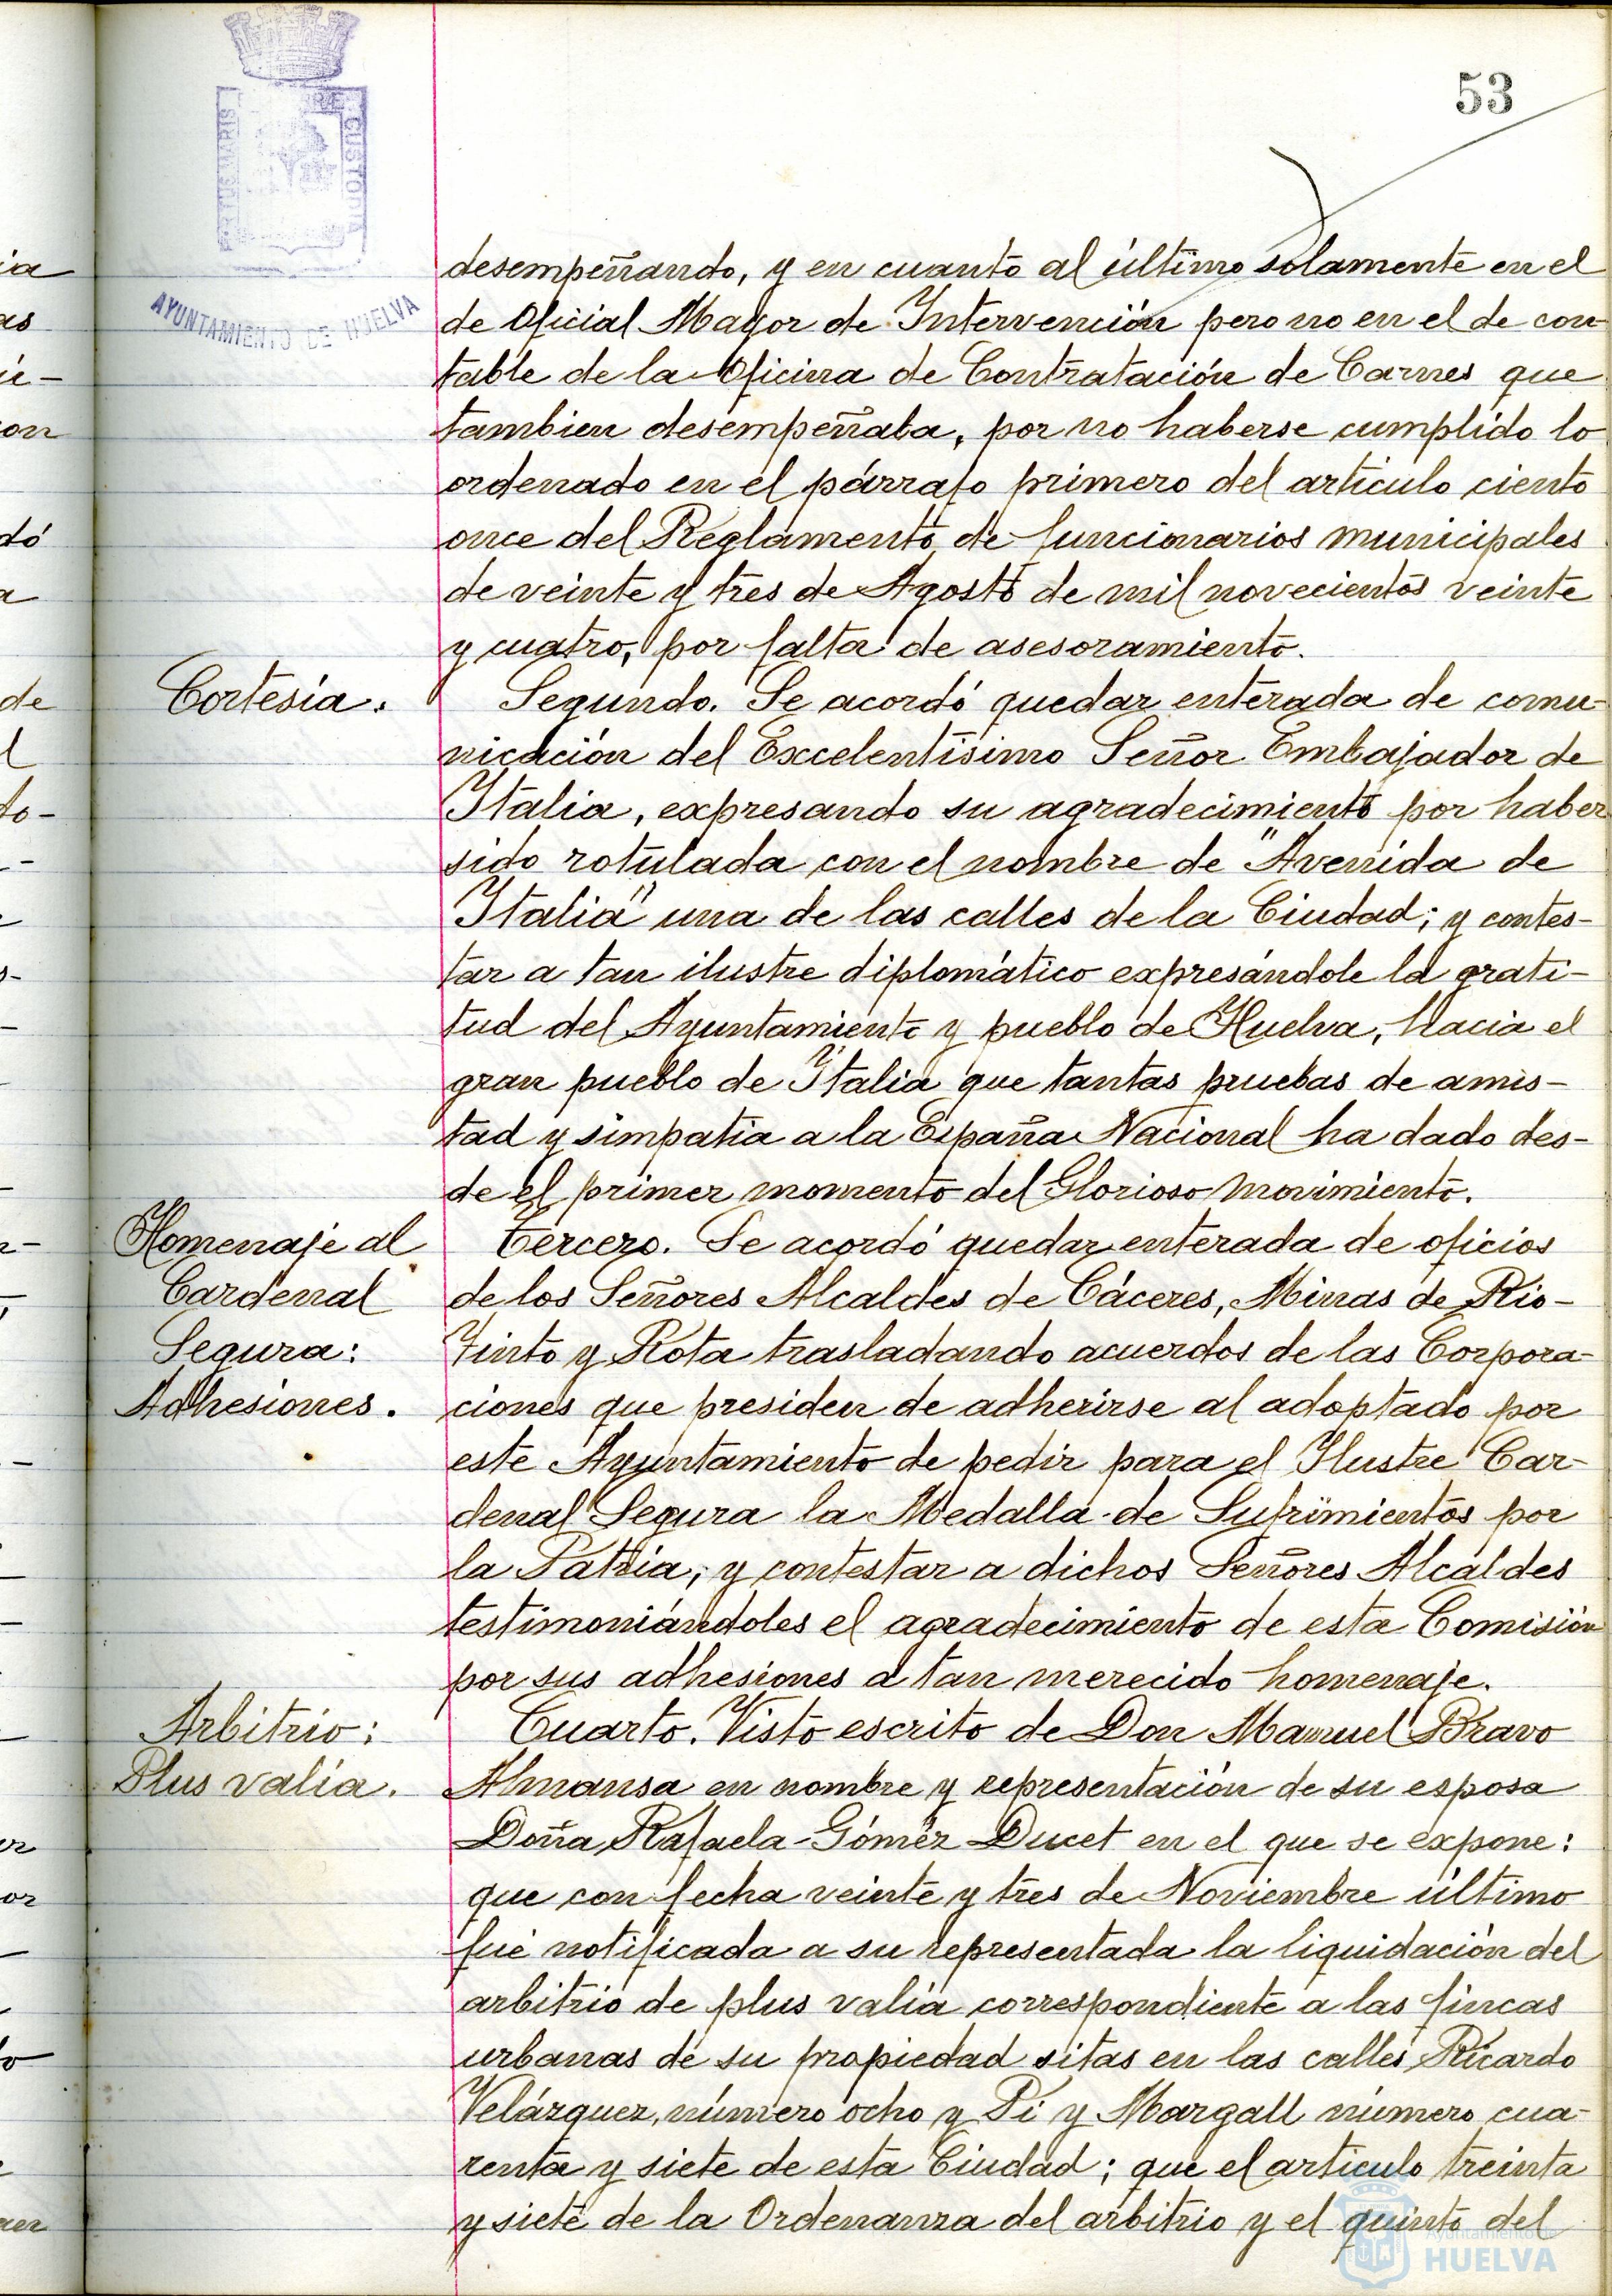 53
PORTUS MARIS
CUSTODIA
AYUNTAMIENTO DE HUELVA
desempeñando, y en cuanto al último solamente en el
de Oficial Mayor de Intervención pero no en el de con-
table de la Oficina de Contratación de Carnes que
tambien desempeñaba, por no haberse cumplido lo
ordenado en el párrafo primero del articulo ciento
once del Reglamento de funcionarios municipales
de veinte y tres de Agosto de mil novecientos veinte
y cuatro, por falta de asesoramiento.
Cortesía.
Segundo. Se acordó quedar enterada de comu-
nicación del Excelentísimo Señor Embajador de
Italia, expresando su agradecimiento por haber
sido rotulada con el nombre de "Avenida de
Italia" una de las calles de la Ciudad; y contes-
tar a tan ilustre diplomático expresándole la grati-
tud del Ayuntamiento y pueblo de Huelva, hacia el
gran pueblo de Italia que tantas pruebas de amis-
tad y simpatía a la España Nacional ha dado des-
de el primer momento del Glorioso Movimiento.
Homenaje al
Cardenal
Segura:
Adhesiones.
Tercero. Se acordó quedar enterada de oficios
de los Señores Alcaldes de Cáceres, Minas de Rio-
Tinto y Rota trasladando acuerdos de las Corpora-
ciones que presiden de adherirse al adoptado por
este Ayuntamiento de pedir para el Ilustre Car-
denal Segura la Medalla de Sufrimientos por
la Patria; y contestar a dichos Señores Alcaldes
testimoniándoles el agradecimiento de esta Comisión
por sus adhesiones a tan merecido homenaje.
Arbitrio:
Plus valia.
Cuarto. Visto escrito de Don Manuel Bravo
Almansa en nombre y representación de su esposa
Doña Rafaela Gómez Ducet en el que se expone:
que con fecha veinte y tres de Noviembre último
fué notificada a su representada la liquidación del
arbitrio de plus valia correspondiente a las fincas
urbanas de su propiedad sitas en las calles Ricardo
Velázquez, número ocho y Pi y Margall número cua-
renta y siete de esta Ciudad; que el articulo treinta
y siete de la Ordenanza del arbitrio y el quinto del
Ayuntamiento de
HUELVA